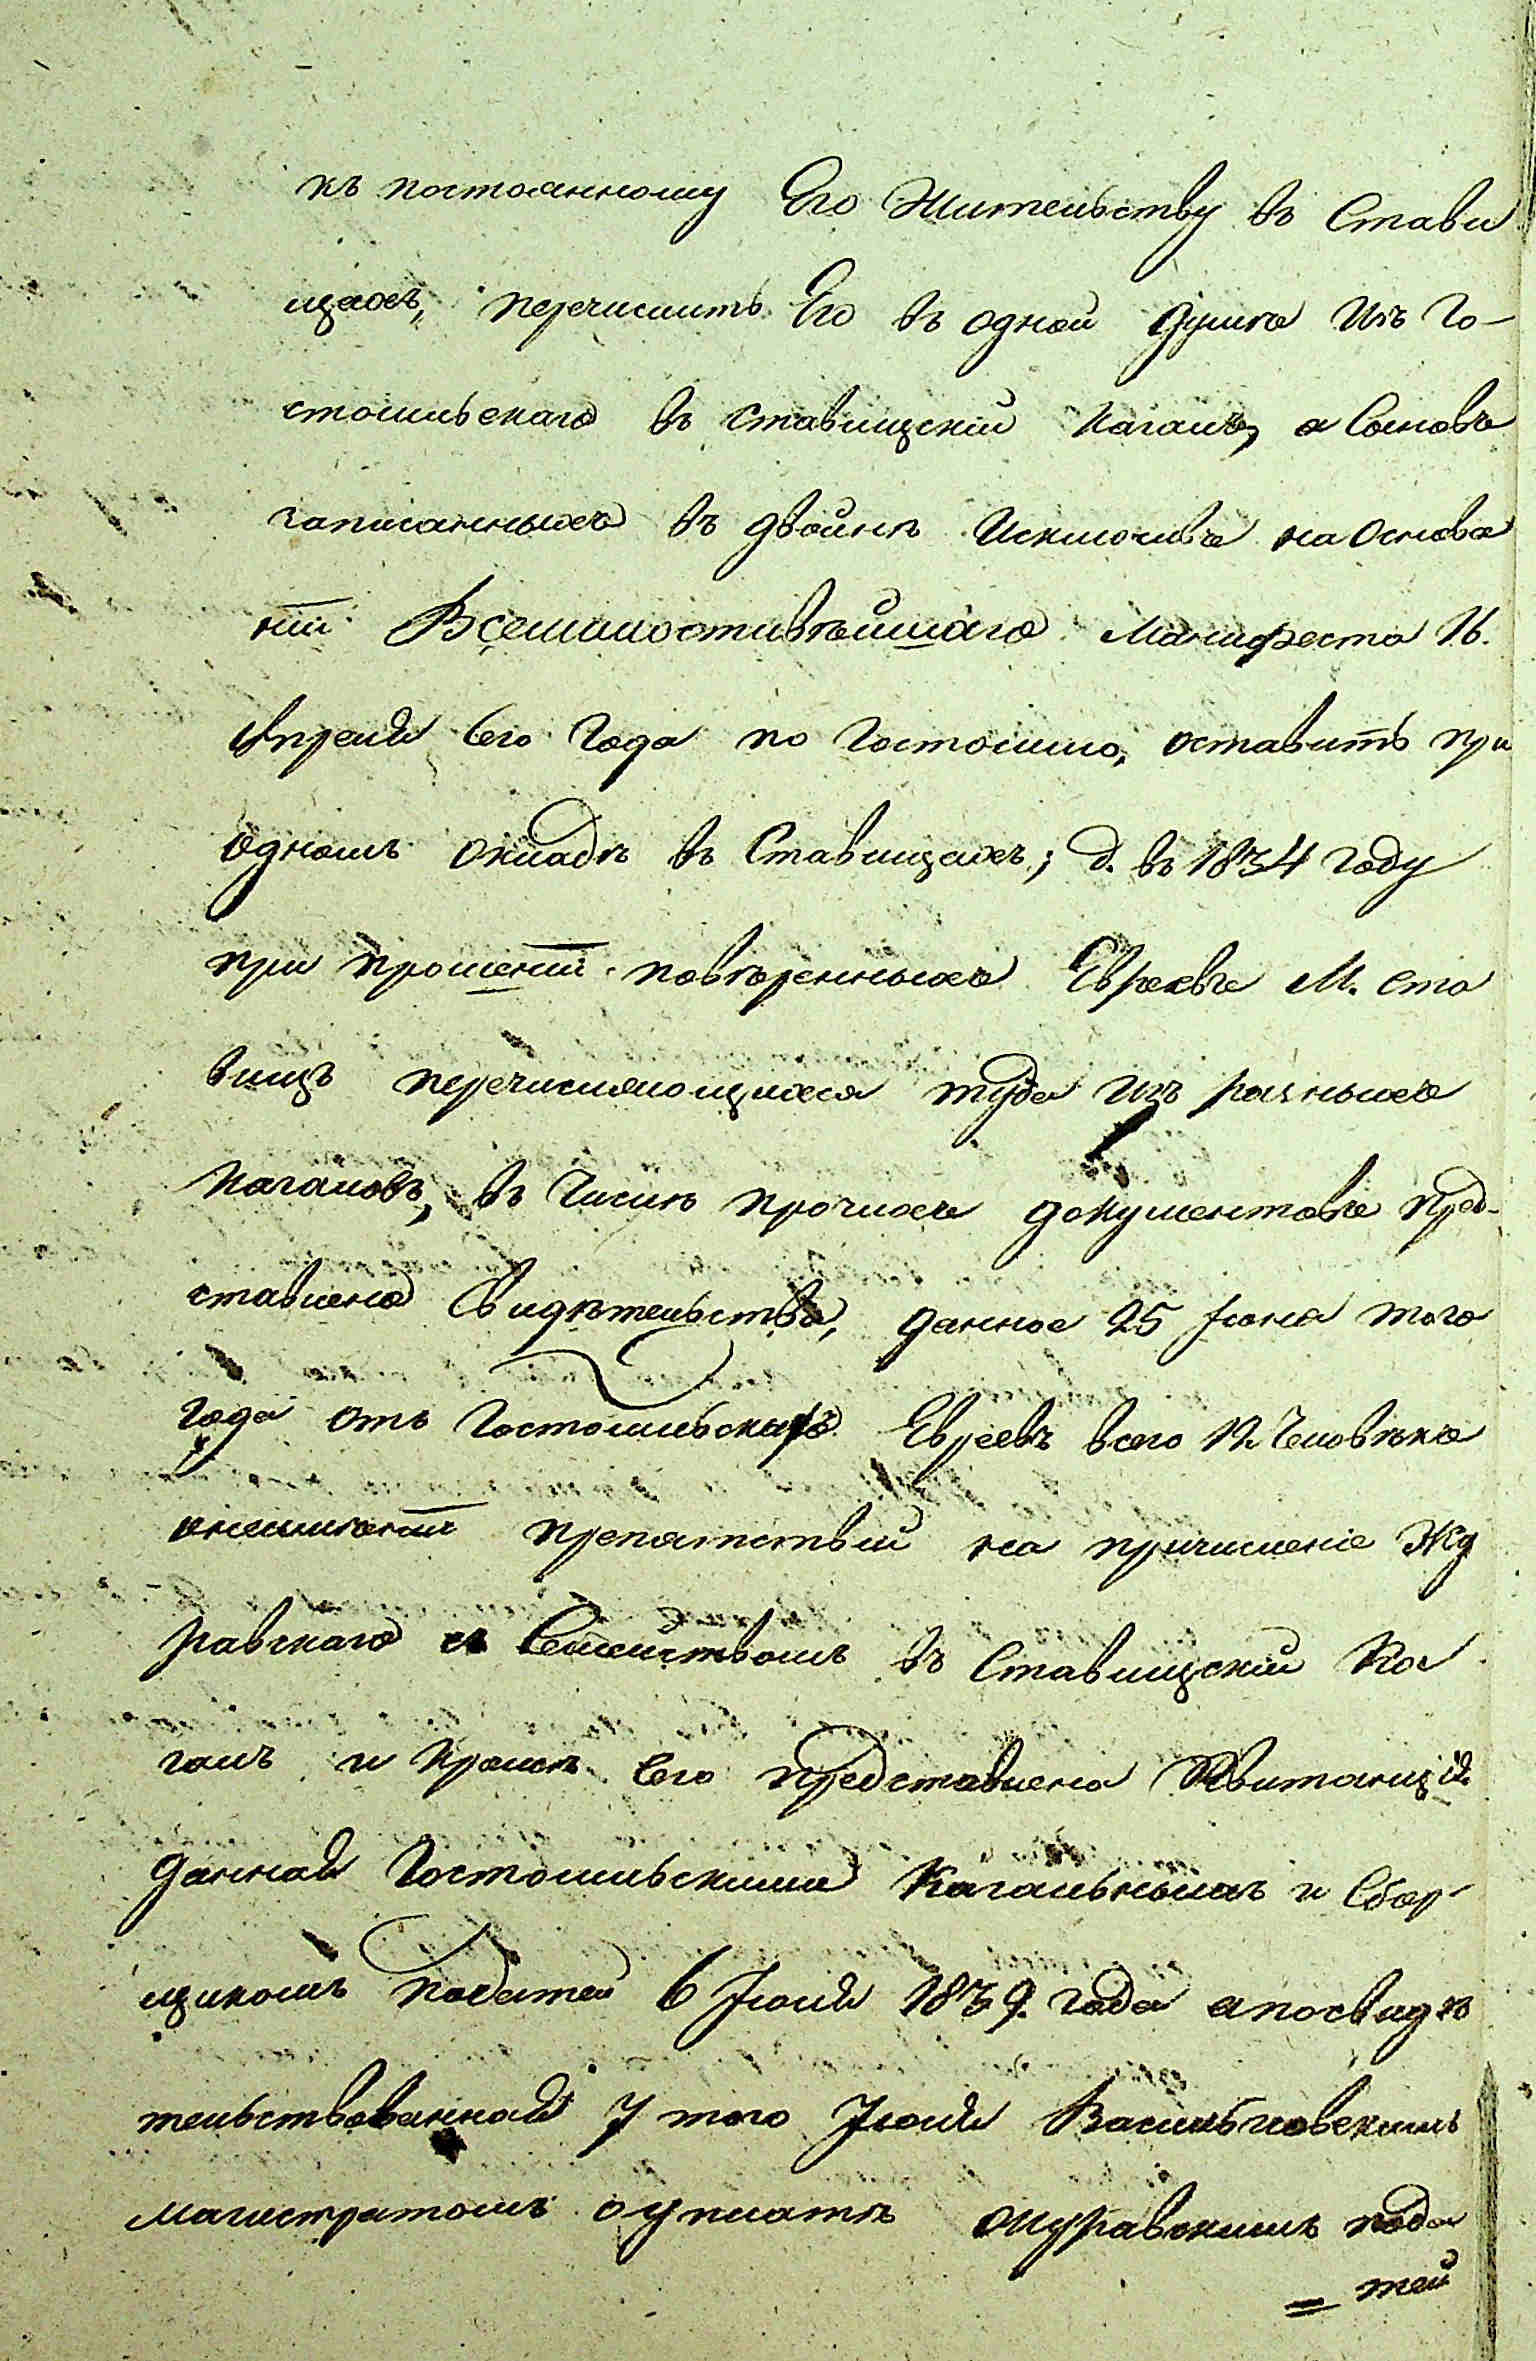 къ постоянному Его Жительству въ Стави
щахъ, перечислить Его въ одной душѣ изъ Го-
стомльскаго въ Ставищскій Кагалъ, а Сыновъ
записанныхъ въ двойнѣ Исключивъ на Основа
ніи Всемилостивѣйшаго Манифеста 16.
Апреля сего Года по Гостомлю, оставить при
одномъ окладѣ въ Ставищахъ; д. въ 1834 Году
при прошеніи повѣренныхъ Евреевъ М. Ста
вищъ перечисляющихся туда изъ разныхъ
Кагаловъ, въ Числѣ прочихъ документовъ пред-
ставлено Свидѣтельство, данное 25 Іюня того
Года отъ Гостомльскихъ Евреевъ всего 12 Человѣкъ
онеимѣніи препятствій на причисленіе Жу
равскаго съ Семействомъ въ Ставищскій Ка
галъ и Кромѣ Сего представлена Квитанція
данная Гостомльскимъ Кагальнымъ и Сбор-
щикомъ Податей 6 Іюля 1839. Года апосвидѣ
тельствованная 7 того Іюля Васильковскимъ
Магистратомъ оуплатѣ Журавскимъ пода
= тей